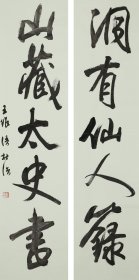 洞有仙人籙
山藏太史書